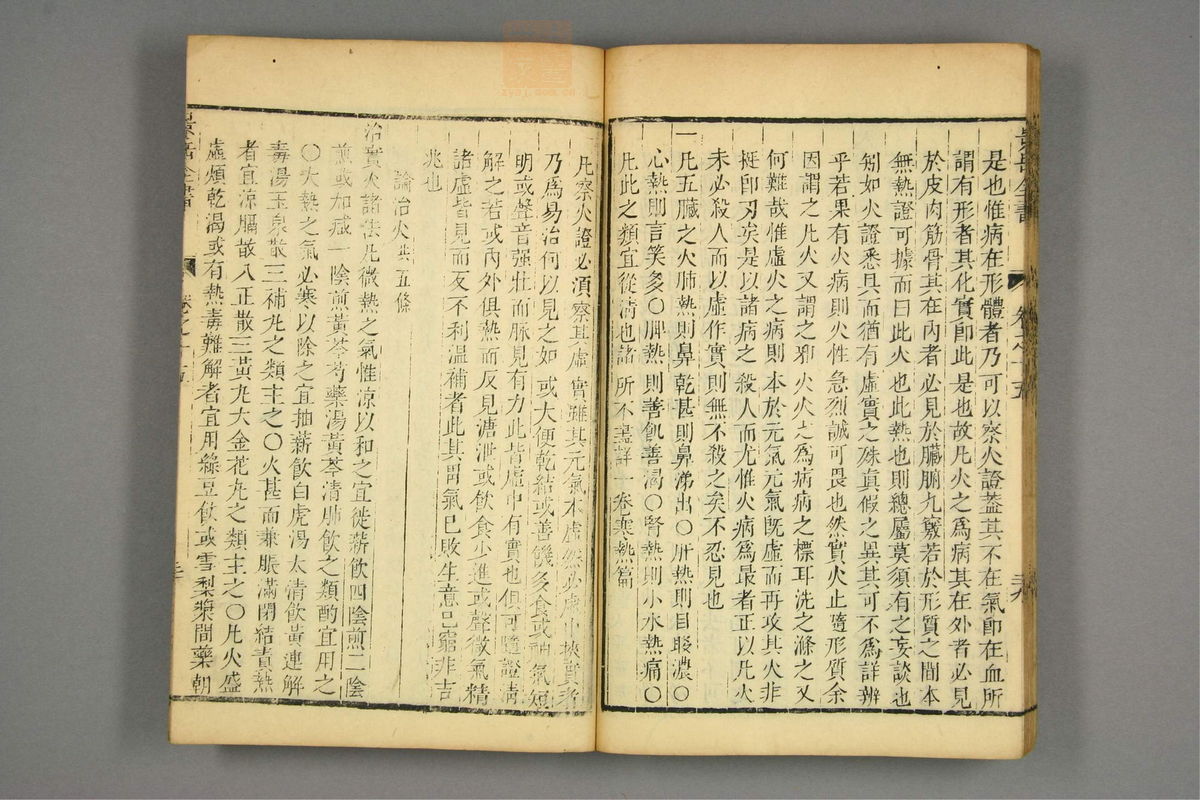 景岳全書
卷之十五
是也惟病在形體者乃可以察火證蓋其不在氣卽在血所
謂有形者其化實卽此是也故凡火之爲病其在外者必見
於皮肉筋骨其在內者必見於臟腑九竅若於形質之間本
無熱證可據而曰此火也此熱也則總屬莫須有之妄談也
矧如火證悉具而猶有虛實之殊眞假之異其可不爲詳辨
乎若果有火病則火性急烈誠可畏也然實火止隨形質余
因謂之凡火又謂之邪火火之爲病病之標耳洗之滌之又
何難哉惟虛火之病則本於元氣元氣旣虛而再攻其火非
挺卽刃矣是以諸病之殺人而尤惟火病爲最者正以凡火
未必殺人而以虛作實則無不殺之矣不忍見也
一凡五臟之火肺熱則鼻乾甚則鼻涕出〇肝熱則目眵濃〇
心熱則言笑多〇脾熱則善飢善渴〇腎熱則小水熱痛〇
凡此之類宜從淸也諸所不盡詳一卷寒熱篇
一凡察火證必須察其虛實雖其元氣本虛然必虛中挾實者
乃爲易治何以見之如或大便乾結或善饑多食或神氣短
明或聲音强壯而脉見有力此皆虛中有實也俱可隨證淸
解之若或內外俱熱而反見溏泄或飲食少進或聲微氣精
諸虛皆見而反不利溫補者此其胃氣已敗生意已窮非吉
兆也
論治火共五條
治實火諸法凡微熱之氣惟凉以和之宜徙薪飲四陰煎二陰
煎或加减一陰煎黃芩芍藥湯黃芩淸肺飲之類酌宜用之
〇大熱之氣必寒以除之宜抽薪飲白虎湯太淸飲黃連解
毒湯玉泉散三補丸之類主之〇火甚而兼脹滿閉結實熱
者宜凉膈散八正散三黃丸大金花丸之類主之〇凡火盛
虛煩乾渴或有熱毒難解者宜用綠豆飲或雪梨漿間藥朝
景岳全書